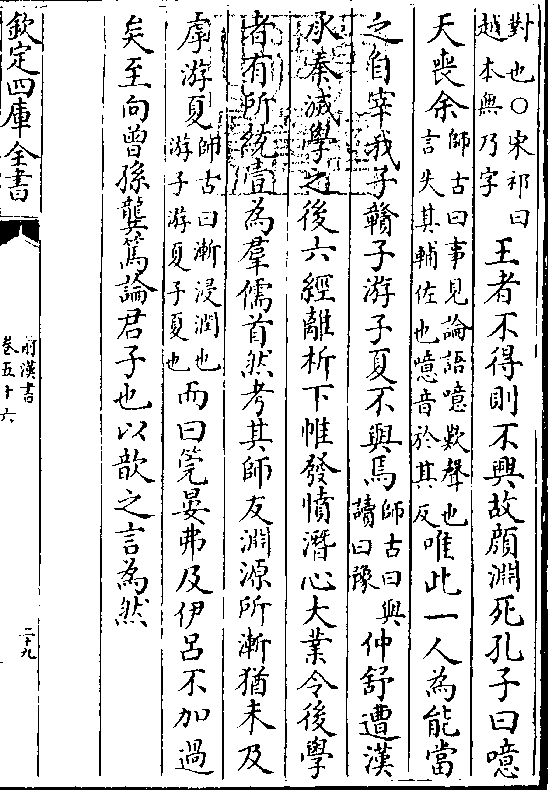 對也○宋祁曰越本無乃字王者不得則不興故顔淵死孔子曰噫
天喪余師古曰事見論語噫歎聲也言失其輔佐也噫音於其反唯此一人為能當
之自宰我子贛子游子夏不與焉師古曰與讀曰豫仲舒遭漢
承秦滅學之後六經離析下帷發憤潛心大業令後學
者有所統壹為羣儒首然考其師友淵源所漸猶未及
虖游夏師古曰漸浸潤也游子游夏子夏也而曰筦晏弗及伊呂不加過
矣至向曾孫龔篤論君子也以歆之言為然
欽定四庫全書
前漢書
卷五十六
二十九